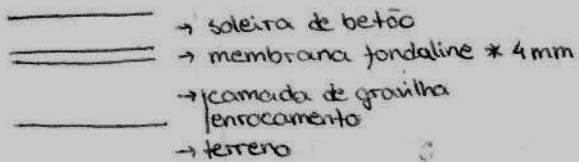 → soleira de betão
→ membrana fondaline * 4mm
→ camada de gravilha
enrocamento
→ terreno